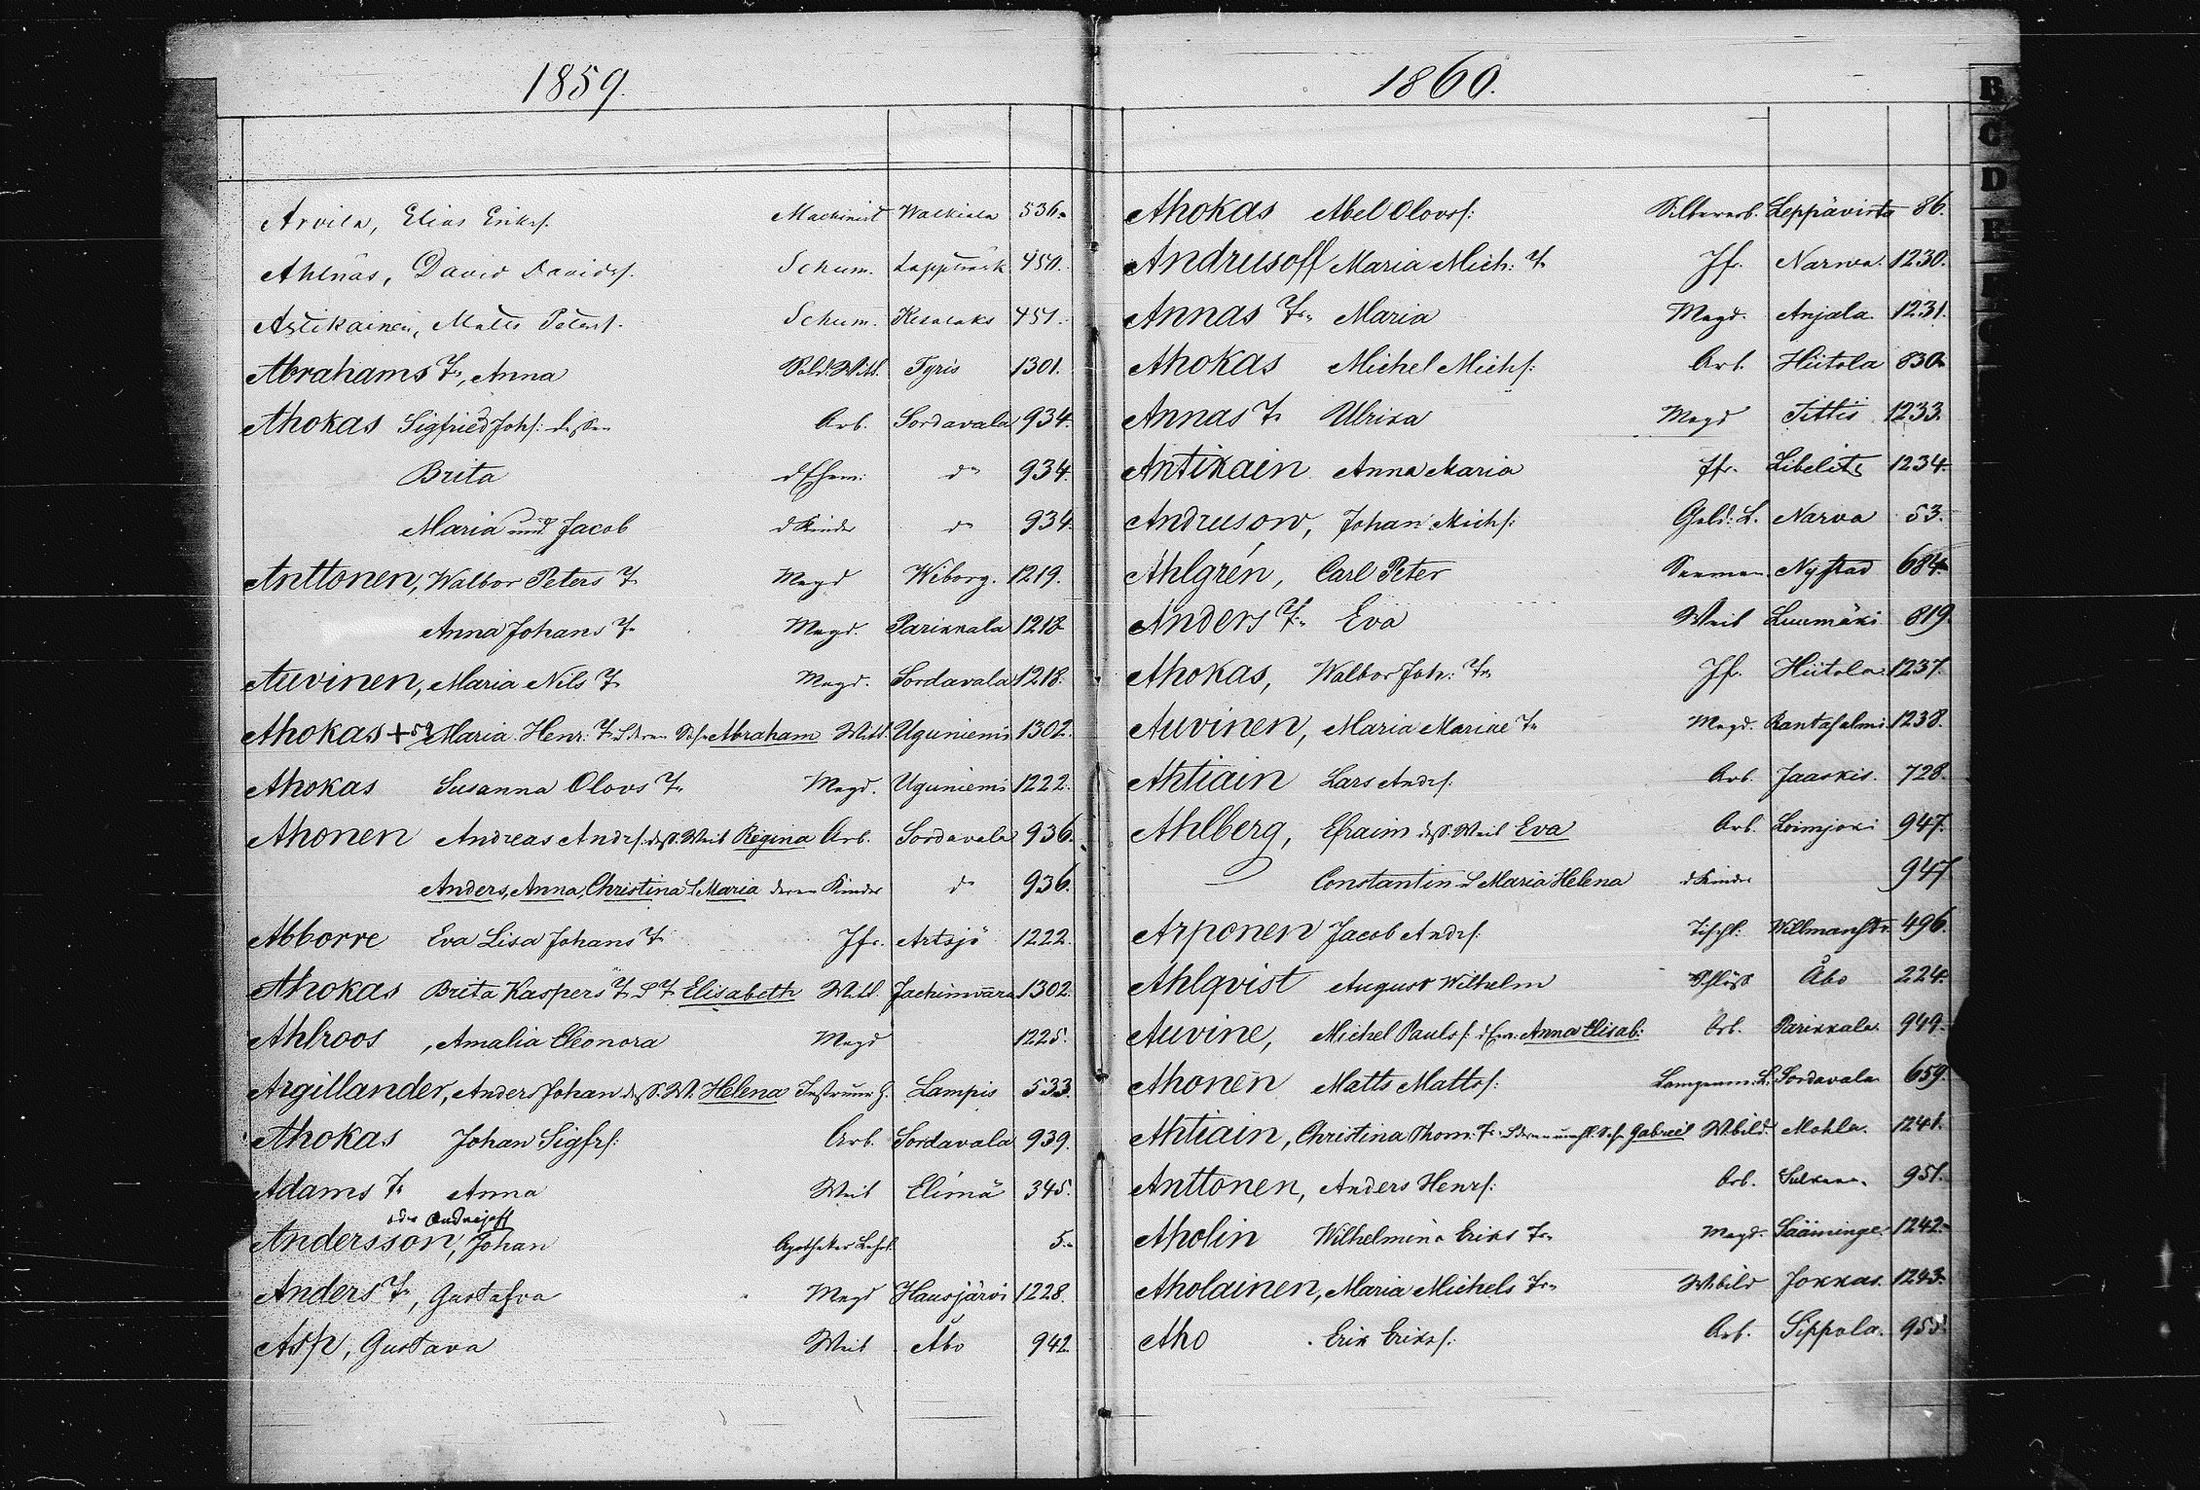 1859.
Arvila, Elias Eriksf. Machinist Walkiala 536.
Ahlnäs, David Davidsf. Schum. Lappträsk 450.
Astikainen, Matts Petersf. Schum. Kesälaks 451.
Abrahams Tr, Anna Sold. Witt. Tyris 1301.
Ahokas Sigfried Johf: dessen Arb. Sordavala 934.
Brita d Ehem: do 934.
Maria und Jacob d Kinder do 934.
Anttonen, Walbor Peters Tr Magd Wiborg. 1219.
Anna Johans Tr Magd. Parikkala 1218
Auvinen, Maria Nils Tr Magd. Sordavala 1218.
Ahokas +59 Maria Henr: Tr & deren Sohn Abraham Witt. Uguniemi 1302.
Ahokas Susanna Olovs Tr Magd. Uguniemi 1222.
Ahonen Andreas Andrf: dess. Weib Regina Arb. Sordavala 936.
Anders, Anna, Christina & Maria deren Kinder do 936.
Abborre Eva Lisa Johans Tr Jfr. Artsjö 1222.
Ahokas Brita Kaspers Tr & Tr Elisabeth Witt. Jackimvara 1302.
Ahlroos, Amalia Eleonora Magd 1225.
Argillander, Anders Johan dess. W. Helena Instrum G. Lampis 533.
Ahokas Johan Sigfrf: Arb. Sordavala 939.
Adams Tr Anna Weib Elimä 345.
oder Andrejeff
Andersson, Johan Apotheker Lehrl. 5.
Anders Tr, Gustafva Magd Hausjärvi 1228.
Asp, Gustava Weib Åbo 942.
1860.
Ahokas Abel Olovsf: Silberarb. Leppävirta 86.
Andrusoff Maria Mich: Tr Jfr. Narwa. 1230.
Annas Tr. Maria Magd. Anjala. 1231.
Ahokas Michel Michf: Arb. Hiitola 830.
Annas Tr Ulrika Magd Jittis 1233.
Antikain Anna Maria Jfr. Libelits 1234.
Andrusow, Johan Michf: Gold: L. Narva 53.
Ahlgrén, Carl Peter Seeman. Nystad 684.
Anders Tr. Eva Weib Luumäki 819.
Ahokas, Walbor Joh: Tr. Jfr. Hiitola. 1237.
Auvinen, Maria Mariae Tr Magd. Rantasalmi 1238.
Ahtiain Lars Andrf. Arb. Jaaskis. 728.
Ahlberg, Efraim dess. Weib Eva Arb. Loimjoki 947.
Constantin & Maria Helena d Kinder 947
Arponen Jacob Andrf. Tischl: Willmanstr. 496.
Ahlqvist August Wilhelm Schloss Åbo 224.
Auvine, Michel Paulsf: Anna Elisab: Arb. Parikkala 949.
Ahonen Matts Mattsf: Lampenm. L. Sordavala 659.
Ahtiain, Christina Thom: Tr. & deren unehl. Sohn Gabriel Wbild. Mohla. 1241.
Anttonen, Anders Henrf: Arb. Sulkava. 951.
Aholin Wilhelmina Eriks Tr. Magd. Sääminge. 1242.
Aholainen, Maria Michels Tr. Wbild Jokkas. 1243.
Aho Erik Eriksf. Arb. Sippola. 955.
B
C
D
E
F
G